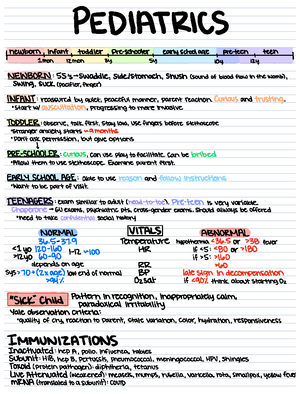 PEDIATRICS
newborn infant toddler Pre-schooler early school age pre-teen teen
1mon 12mon 3y 5y 10y
NEWBORN: 5 S's - Swaddle, Side/Stomach, Shush (sound of blood flow in the womb),
Swing, Suck (pacifier, finger)
INFANT: reassured by quiet, peaceful manner, parent reaction. Curious and trusting.
*Start w/ auscultation, progressing to more invasive
TODDLER: observe, talk first, stay low, use fingers before stethoscope
*Stranger anxiety starts ~9 months
*Don't ask permission, but give options
PRE-SCHOOLER: Curious, can use play to facilitate. Can be bribed
*Allow them to use stethoscope. Examine parent first.
EARLY SCHOOL AGE: able to use reason and follow instructions
*Want to be part of visit
TEENAGERS: exam similar to adult (head-to-toe). Pre-teen is very variable
Chaperone = GU exams, psychiatric pts, cross-gender exams. Should always be offered
*need to take confidential social history
NORMAL VITALS ABNORMAL
36.5-37.9 Temperature hypotherma <36.5 or >38 fever
<1 yo 120-160 HR if <5: <80 or >180
>12yo 60-90 1-12 ~100 if >5: >160
depends on age RR >60
Sys > 70+(2x age) low end of normal BP late sign in decompensation
>94% O2sat if <90% think about starting O2
"SICK" Child Pattern in recognition, inappropriately calm,
paradoxical irritability
Yale observation criteria:
*quality of cry, reaction to parent, state variation, color, hydration, responsiveness
IMMUNIZATIONS
Inactivated: hep A, polio, influenza, rabies
Subunit: HIB, hep B, Pertussis, pneumococcal, meningococcal, HPV, Shingles
Toxoid (protein pathogen): diphtheria, tetanus
Live Attenuated (weakened): measels, mumps, rubella, varicella, rota, smallpox, yellow fever
mRNA (translated to a subunit): COVID